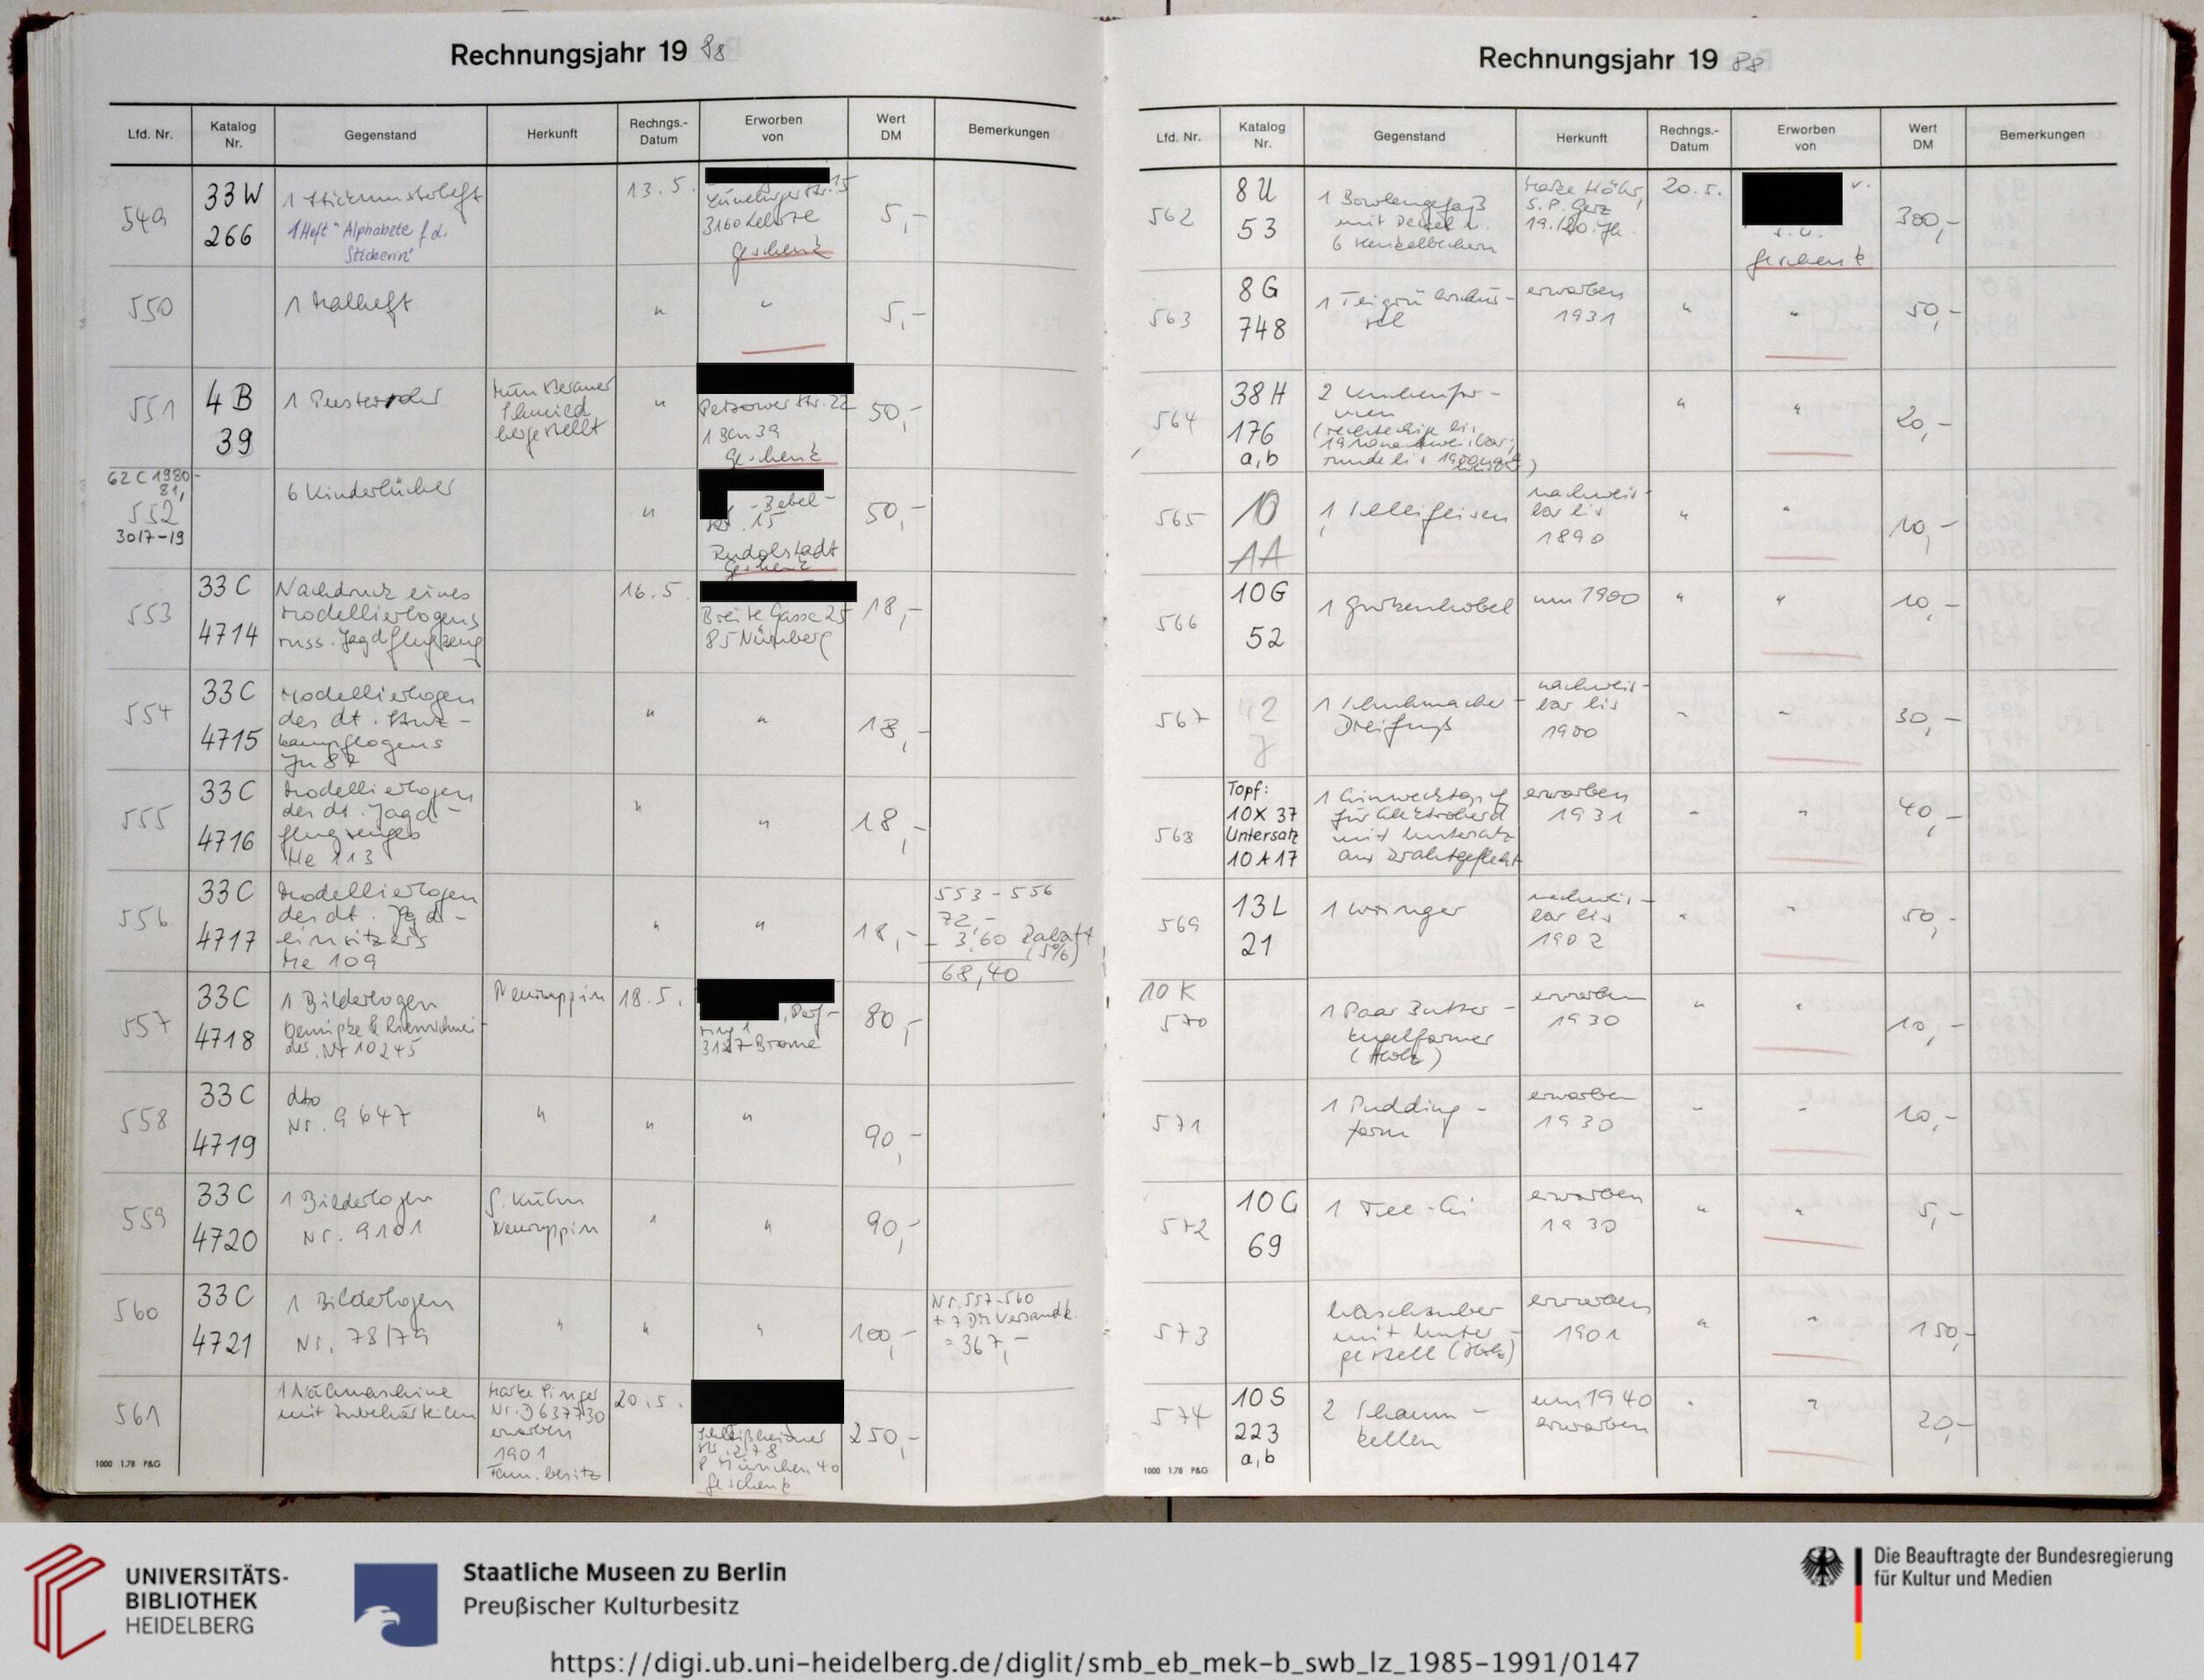 Rechnungsjahr 19 88
Lfd. Nr. Katalog Nr. Gegenstand Herkunft Rechngs.-Datum Erworben von Wert DM Bemerkungen
549 33 W 266 1 Stickmusterheft 13.5. 15 5,-
1 Heft "Alphabete f. d. Stickerin"
3160 Lehrte
Geschenk
550 1 Malheft " " 5,-
551 4 B 39 1 Pusterohr " Petzower Str. 22 50,-
Schmied
hergestellt
1 Bln 39
Geschenk
62 C 1980-81,
552 6 Kinderbücher " -Bebel- 50,-
3017-19
Str. 15
Rudolstadt
Geschenk
553 33 C 4714 Nachdruck eines 16.5. Breite Gasse 25 18,-
Modellierbogens
russ. Jagdflugzeug
85 Nürnberg
554 33 C 4715 Modellierbogen " " 18,-
des dt. Sturz-
kampfbogens
Ju 87
555 33 C 4716 Modellierbogen " " 18,-
des dt. Jagd-
flugzeuges
He 113
556 33 C 4717 Modellierbogen " " 18,-
des dt. Jagd-
einsitzers
Me 109
553-556
72,-
- 3,60 Rabatt
(5%)
68,40
557 33 C 4718 1 Bilderbogen Neuruppin 18.5. , Dorf- 80,-
Oemigke & Riemschnei-
der. Nr 10245
ring 1
3127 Brome
558 33 C 4719 dto " " " 90,-
Nr. 9647
559 33 C 4720 1 Bilderbogen G. Kühn " " 90,-
Nr. 9101 Neuruppin
560 33 C 4721 1 Bilderbogen " " " 100,- Nr. 557-560
Nr. 78/79
+ 7 DM Versandk.
= 367,-
561 1 Nähmaschine Marke Singer 20.5. 250,-
mit Zubehörteilen
erworben
1901
Fam. besitz
Schleißheimer
Str. 278
8 München 40
Geschenk
1000 1.78 P&G
Rechnungsjahr 19 88
Lfd. Nr. Katalog Nr. Gegenstand Herkunft Rechngs.-Datum Erworben von Wert DM Bemerkungen
562 8 U 53 1 Bowlengefäß Marke Höhr, 20.5. v. 300,-
mit Deckel u. S.P. Gerz
6 Henkelbechern 19./20. Jh.
s.o.
Geschenk
563 8 G 748 1 Teigrührschüs- erworben " " 50,-
sel 1931
564 38 H 176 a,b 2 Kuchenfor- " " 20,-
men
(rechteckige bis
runde bis
565 10 AA 1 Schleifeisen nachweis- " " 10,-
bar bis
1890
566 10 G 52 1 Gurkenhobel um 1900 " " 10,-
567 42 J 1 Schuhmacher- nachweis- " " 30,-
Dreifuß bar bis
1900
568 Topf: 10X 37 Untersatz 10 A 17 1 Einwecktopf erworben " " 40,-
für Elektroherd 1931
mit Untersatz
aus Drahtgeflecht
569 13 L 21 1 Wringer nachweis- " " 50,-
bar bis
1902
10 K
570 1 Paar Butter- erworben " " 10,-
kugelformer 1930
(Holz)
571 1 Pudding- erworben " " 10,-
form 1930
572 10 G 69 1 Tee-Ei erworben " " 5,-
1930
573 Waschzuber erworben " " 150,-
mit Unter- 1901
gestell (Holz)
574 10 S 223 a,b 2 Schaum- um 1940 " " 20,-
kellen erworben
1000 1.78 P&G
UNIVERSITÄTS-
BIBLIOTHEK
HEIDELBERG
Staatliche Museen zu Berlin
Preußischer Kulturbesitz
Die Beauftragte der Bundesregierung
für Kultur und Medien
https://digi.ub.uni-heidelberg.de/diglit/smb_eb_mek-b_swb_lz_1985-1991/0147